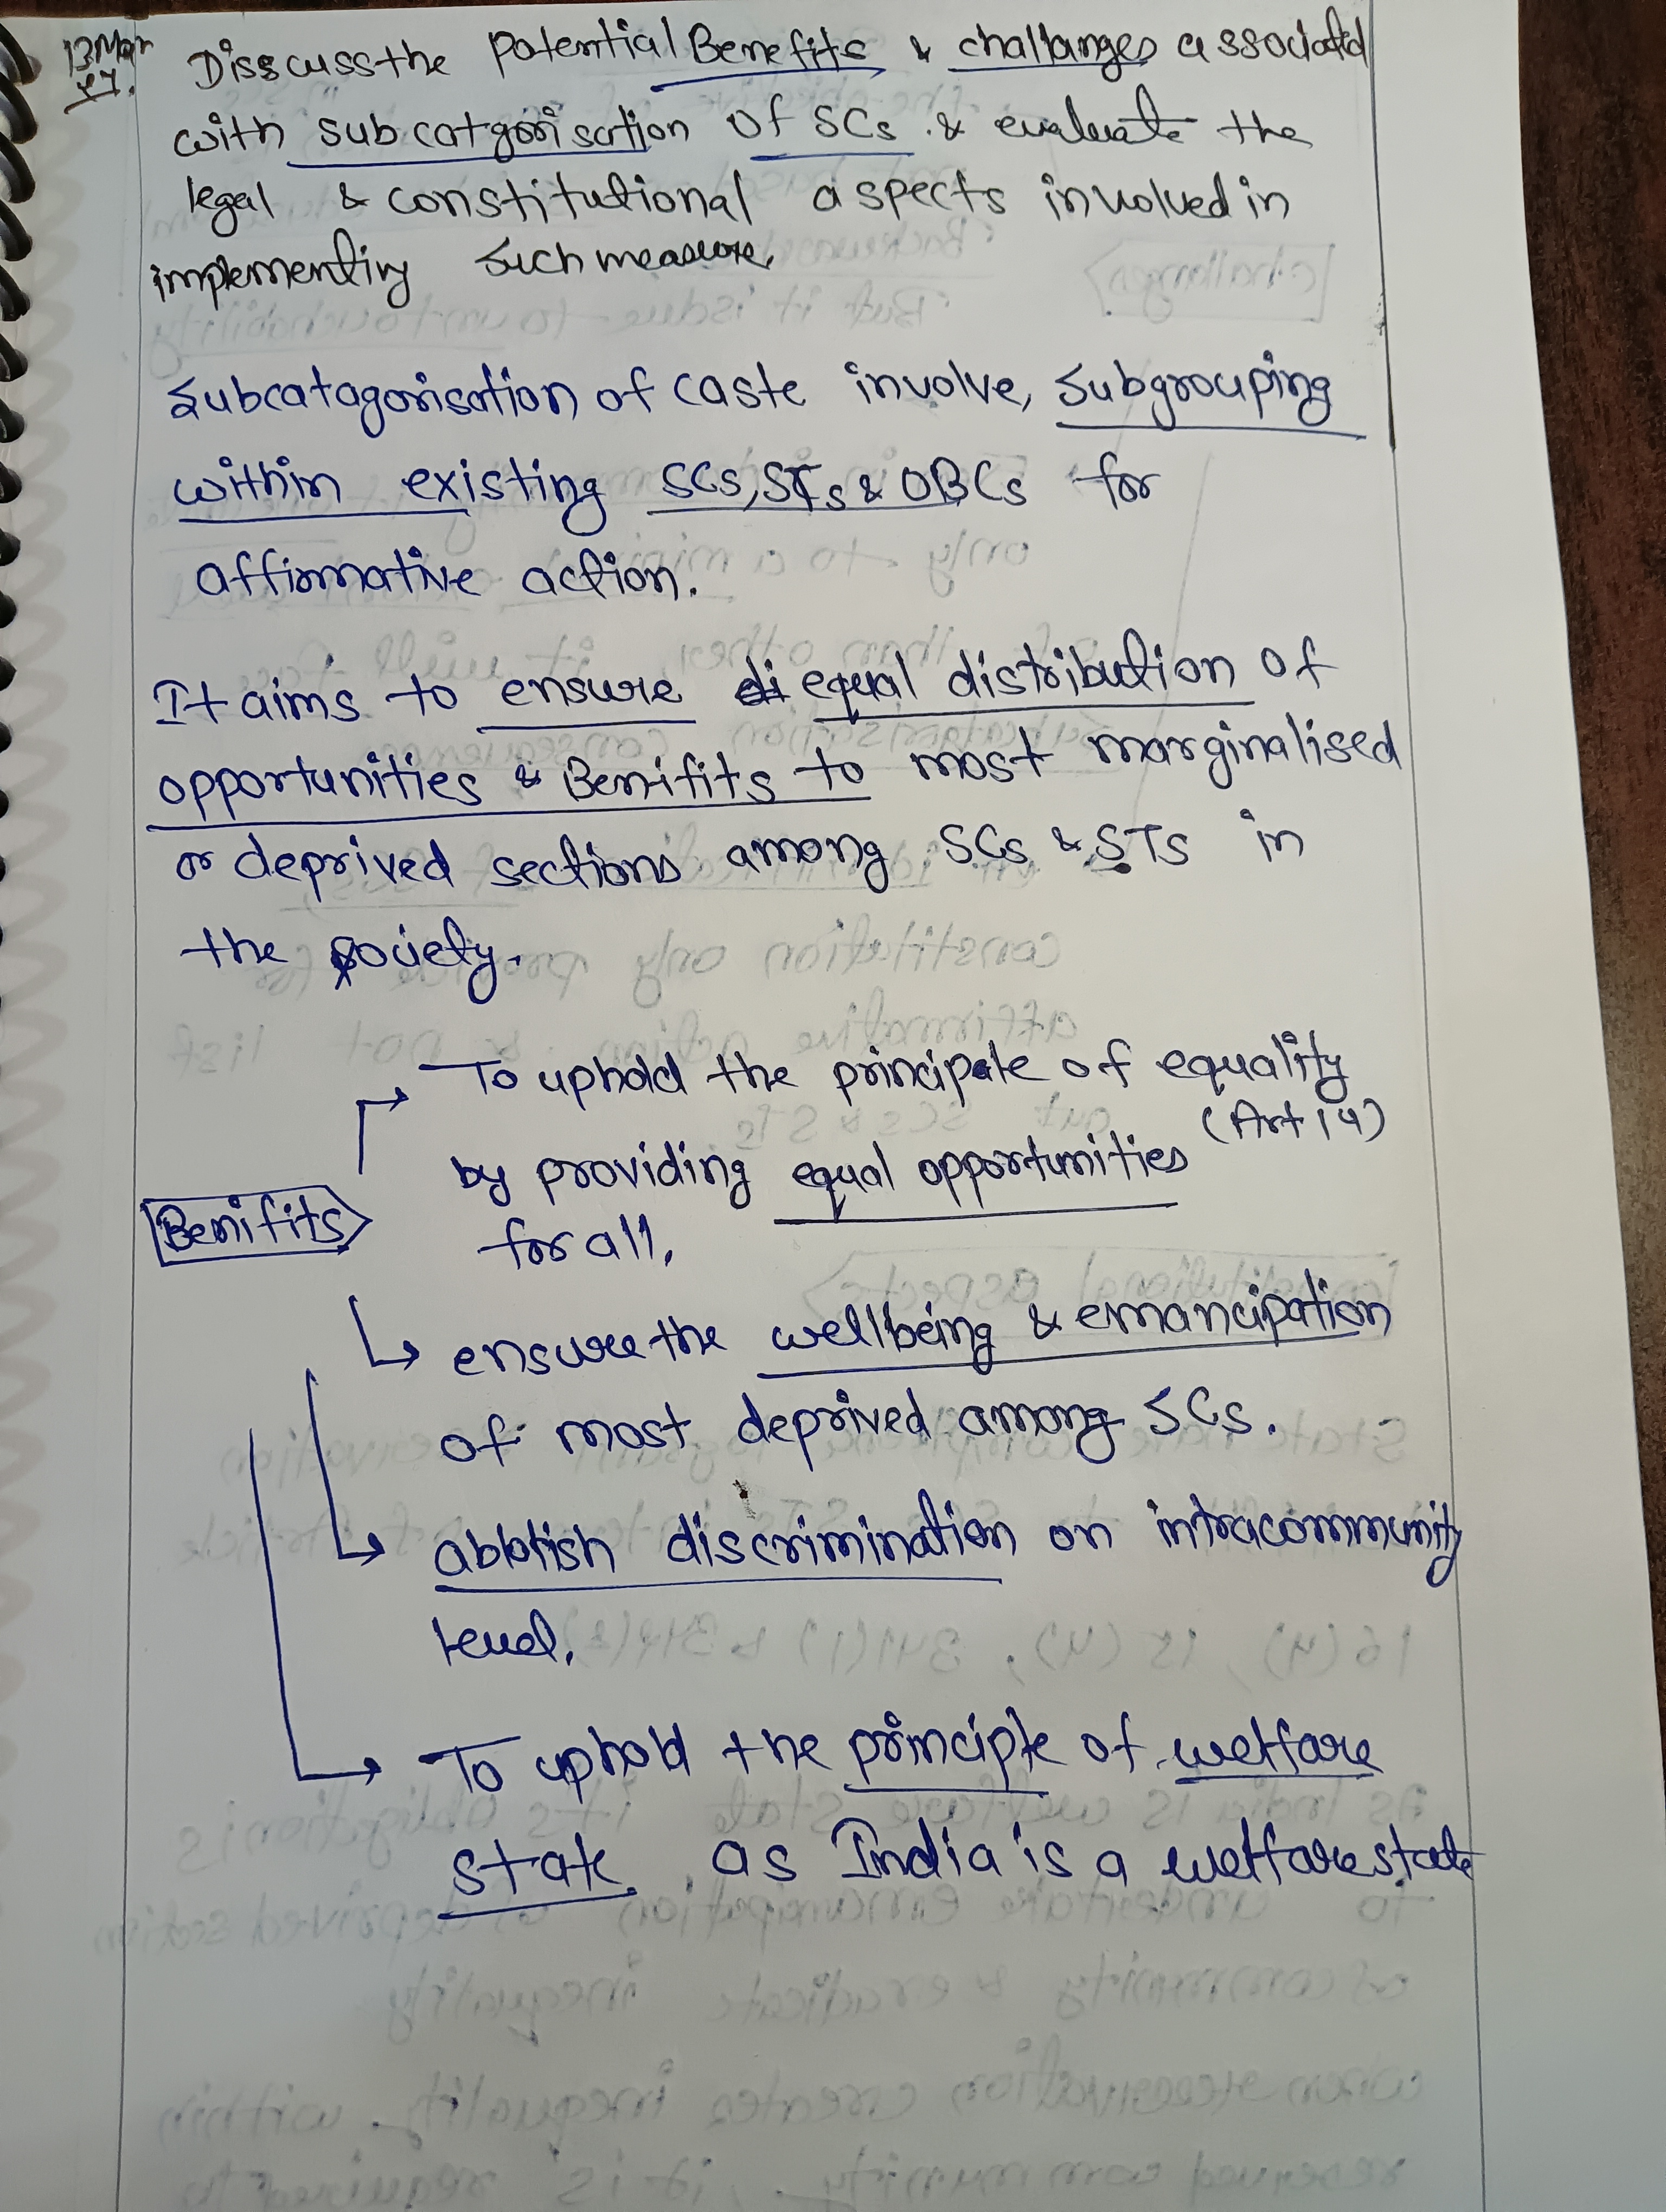 13 Mar
Q1.
Disscuss the potential Benefits & challanges associated
with subcatgorisation of SCs & evaluate the
legal & constitutional aspects involved in
implementing such measure.
Subcatagorisation of caste involve, subgrouping
within existing SCs, STs & OBCs for
affirmative action.
It aims to ensure equal distribution of
opportunities & Benifits to most marginalised
or deprived sections among SCs & STs in
the society.
To uphold the principle of equality
(Art 14)
by providing equal opportunities
for all.
Benifits
ensure the wellbeing & emancipation
of most deprived among SCs.
abolish discrimination on intracommunity
level.
To uphold the principle of welfare
state. as India is a welfare state